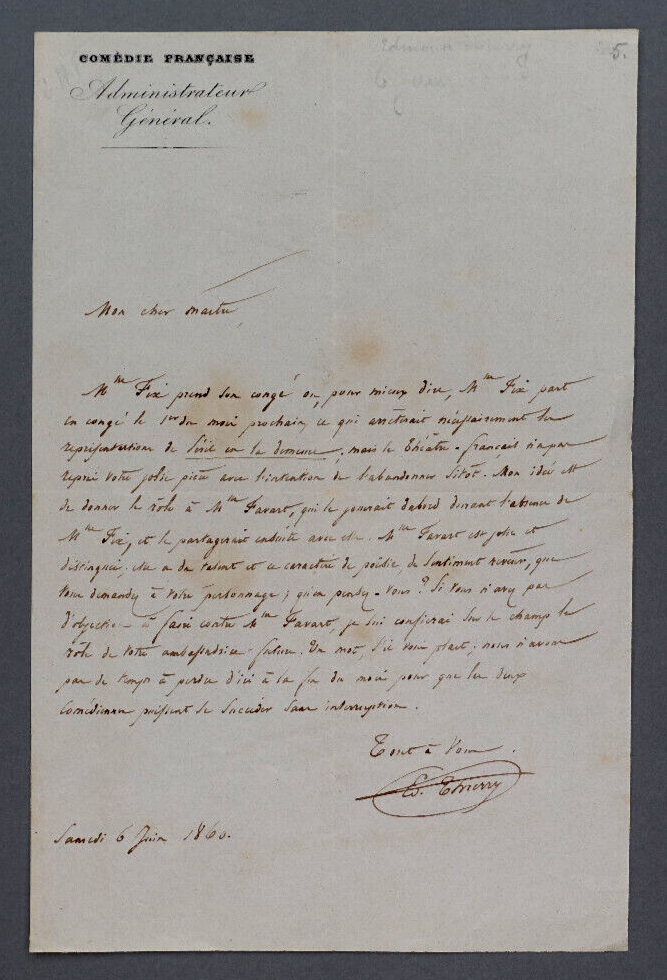 COMÉDIE FRANÇAISE
Administrateur
Général.
5.
Mon cher maître,
Mme Fix prend son congé ou, pour mieux dire, Mme Fix part
en congé le 1er du mois prochain, ce qui arrêterait nécessairement les
représentations de Péril en la demeure, mais le Théâtre-français n'a pas
repris votre jolie pièce avec l'intention de l'abandonner sitôt. Mon idée est
de donner le rôle à Mme Favart, qui le jouerait d'abord durant l'absence de
Mme Fix, et le partagerait ensuite avec elle. Mme Favart est jolie et
distinguée, elle a du talent et ce caractère de poésie, de sentiment rêveur, que
vous demandez à votre personnage ; qu'en pensez-vous ? Si vous n'avez pas
d'objection à faire contre Mme Favart, je lui confierai sur le champ le
rôle de votre ambassadrice future. Un mot, s'il vous plaît ; nous n'avons
pas de temps à perdre d'ici à la fin du mois pour que les deux
comédiennes puissent se succéder sans interruption.
Tout à vous.
Ed. Thierry
Samedi 6 Juin 1860.